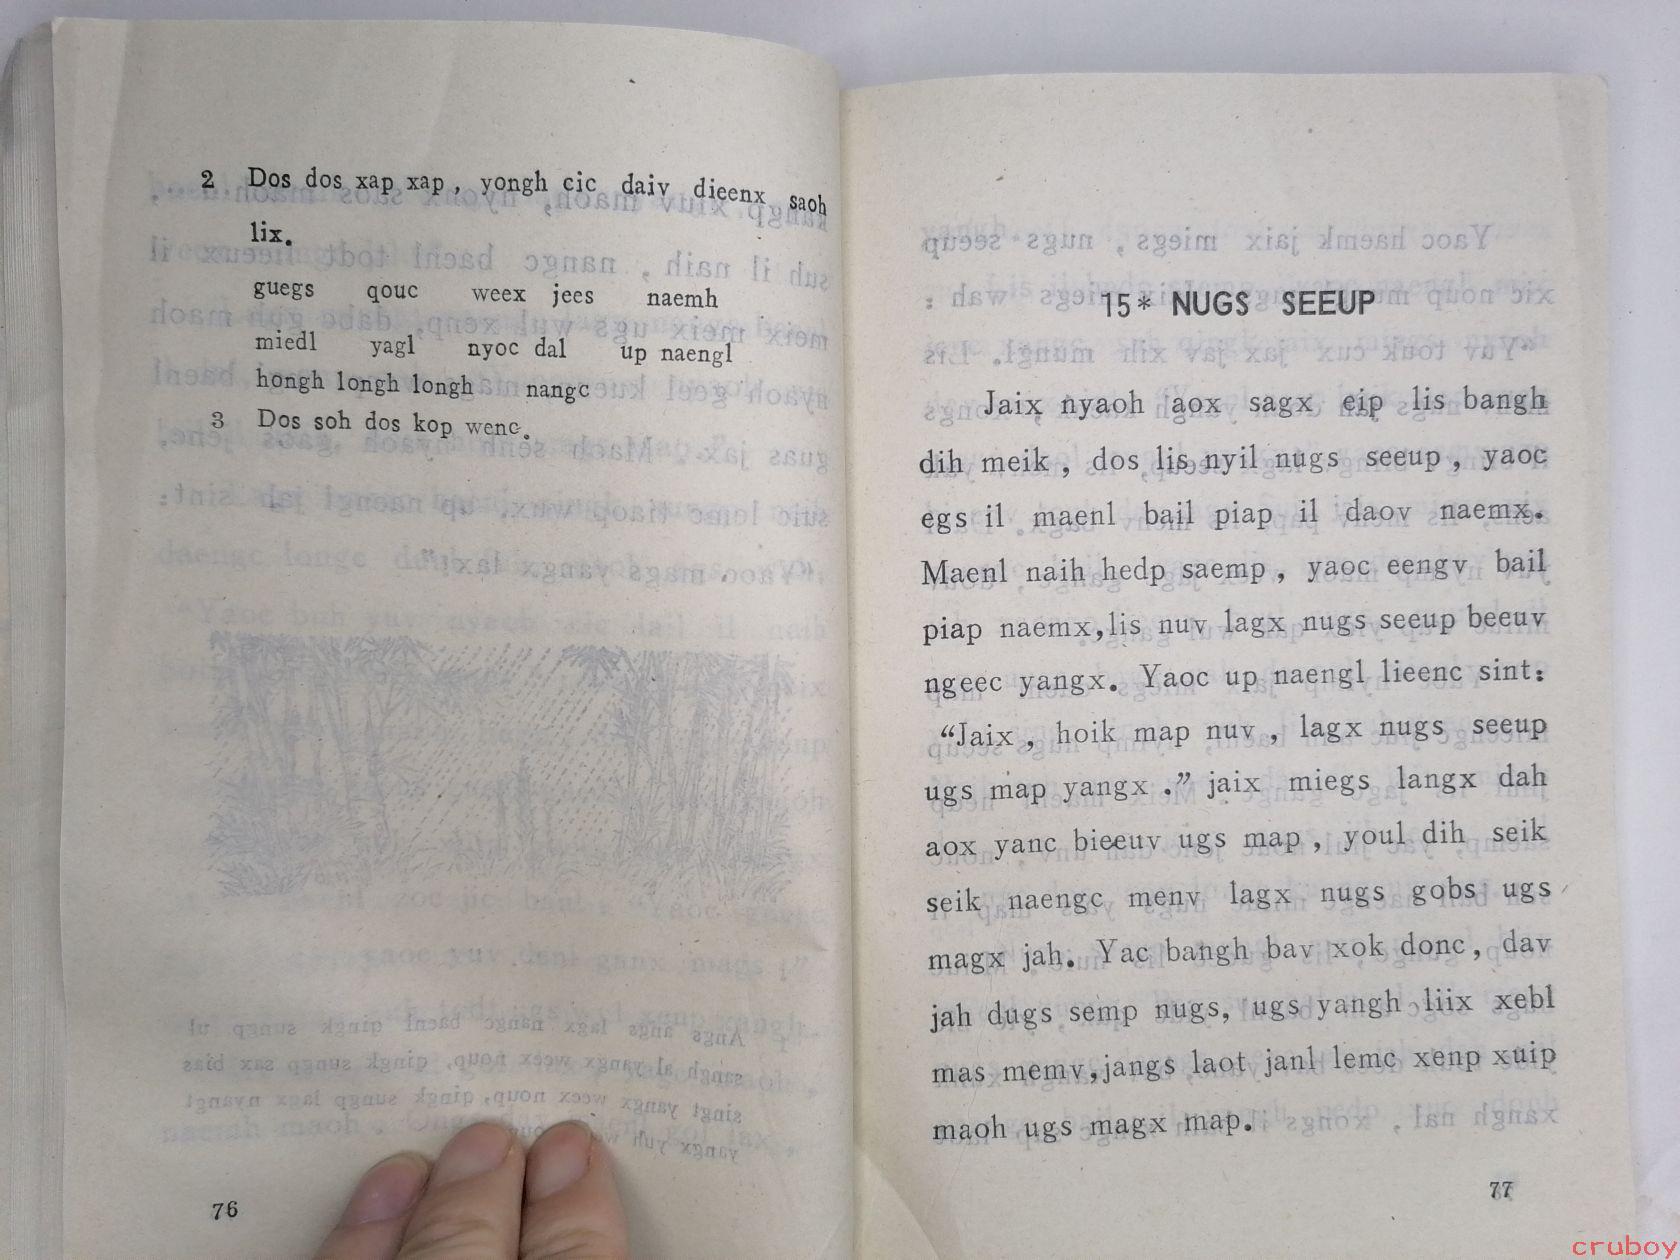 2 Dos dos xap xap, yongh cic daiv dieenx saoh
lix.
guegs qouc weex jees naemh
miedl yagl nyoc dal up naengl
hongh longh longh nangc
3 Dos soh dos kop wenc.
76
15* NUGS SEEUP
Jaix nyaoh aox sagx eip lis bangh
dih meik, dos lis nyil nugs seeup, yaoc
egs il maenl bail piap il daov naemx.
Maenl naih hedp saemp, yaoc eengv bail
piap naemx, lis nuv lagx nugs seeup beeuv
ngeec yangx. Yaoc up naengl lieenc sint:
“Jaix, hoik map nuv, lagx nugs seeup
ugs map yangx.” jaix miegs langx dah
aox yanc bieeuv ugs map, youl dih seik
seik naengc menv lagx nugs gobs ugs
magx jah. Yac bangh bav xok donc, dav
jah dugs semp nugs, ugs yangh liix xebl
mas memv, jangs laot janl lemc xenp xuip
maoh ugs magx map.
77
cruboy